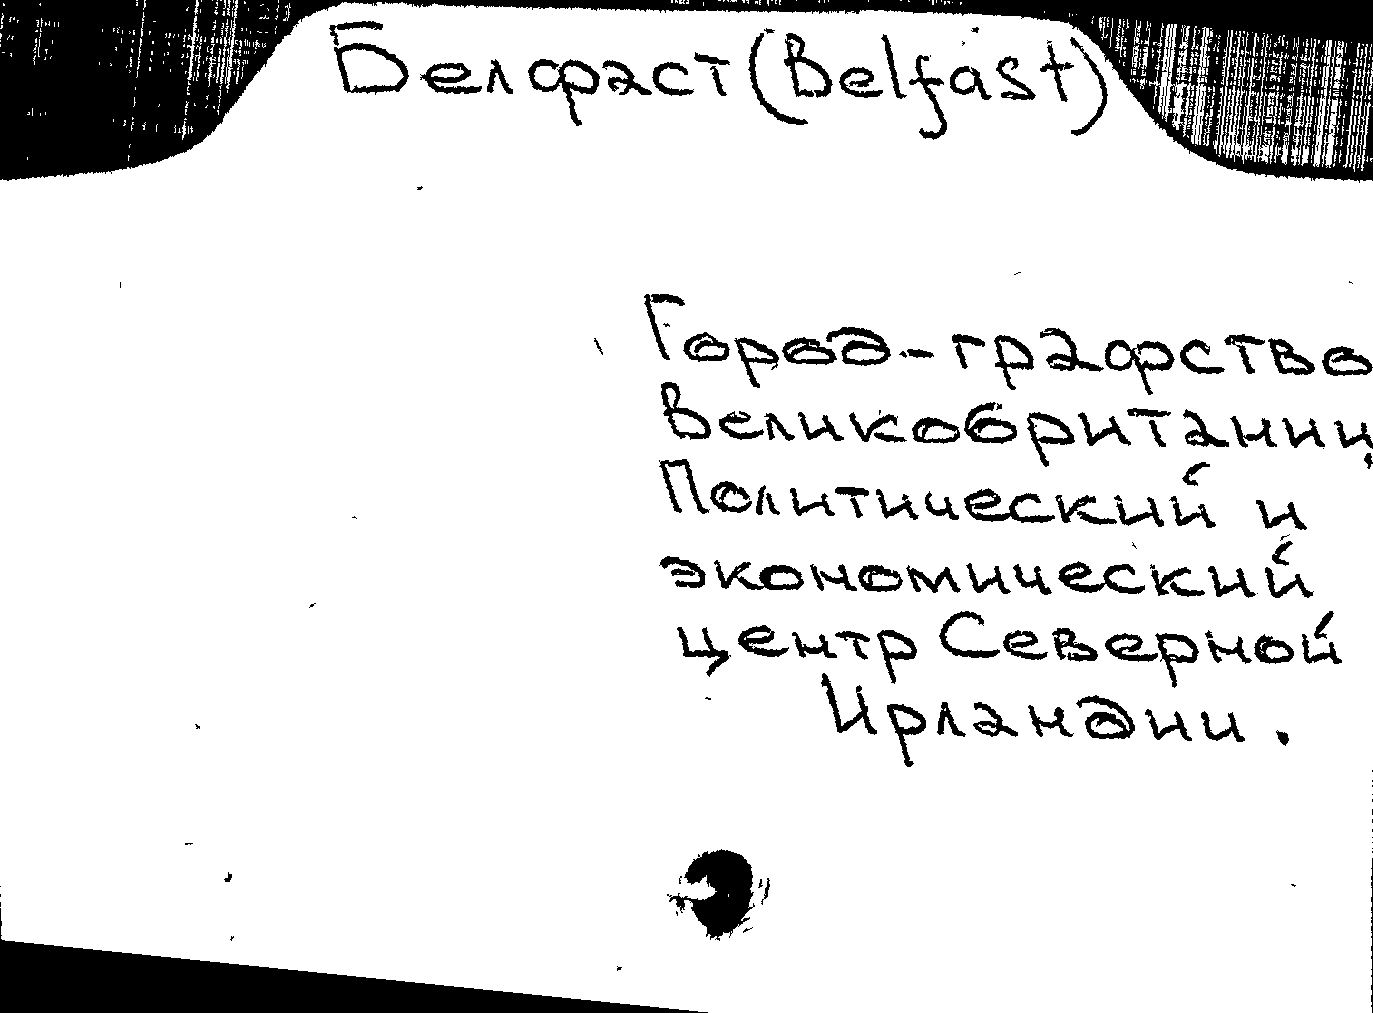 Белфаст (Belfast)
Город-графство
Великобритании,
Политический и
экономический
центр Северной
Ирландии.